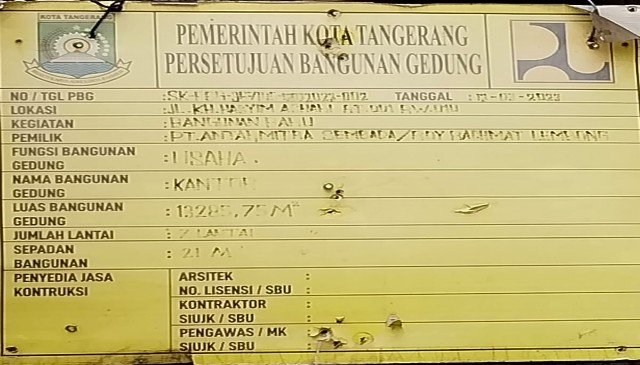 KOTA TANGERANG
PEMERINTAH KOTA TANGERANG
PERSETUJUAN BANGUNAN GEDUNG
NO / TGL PBG : TANGGAL :
LOKASI : JL. KH. HASYIM
KEGIATAN : BANGUNAN BARU
PEMILIK : PT. MITRA SEMBADA/
FUNGSI BANGUNAN GEDUNG : USAHA.
NAMA BANGUNAN GEDUNG : KANTOR
LUAS BANGUNAN GEDUNG : 13285,75 M²
JUMLAH LANTAI : LANTAI
SEPADAN BANGUNAN : 21 M
PENYEDIA JASA KONTRUKSI
ARSITEK :
NO. LISENSI / SBU :
KONTRAKTOR :
SIUJK / SBU :
PENGAWAS / MK :
SIUJK / SBU :